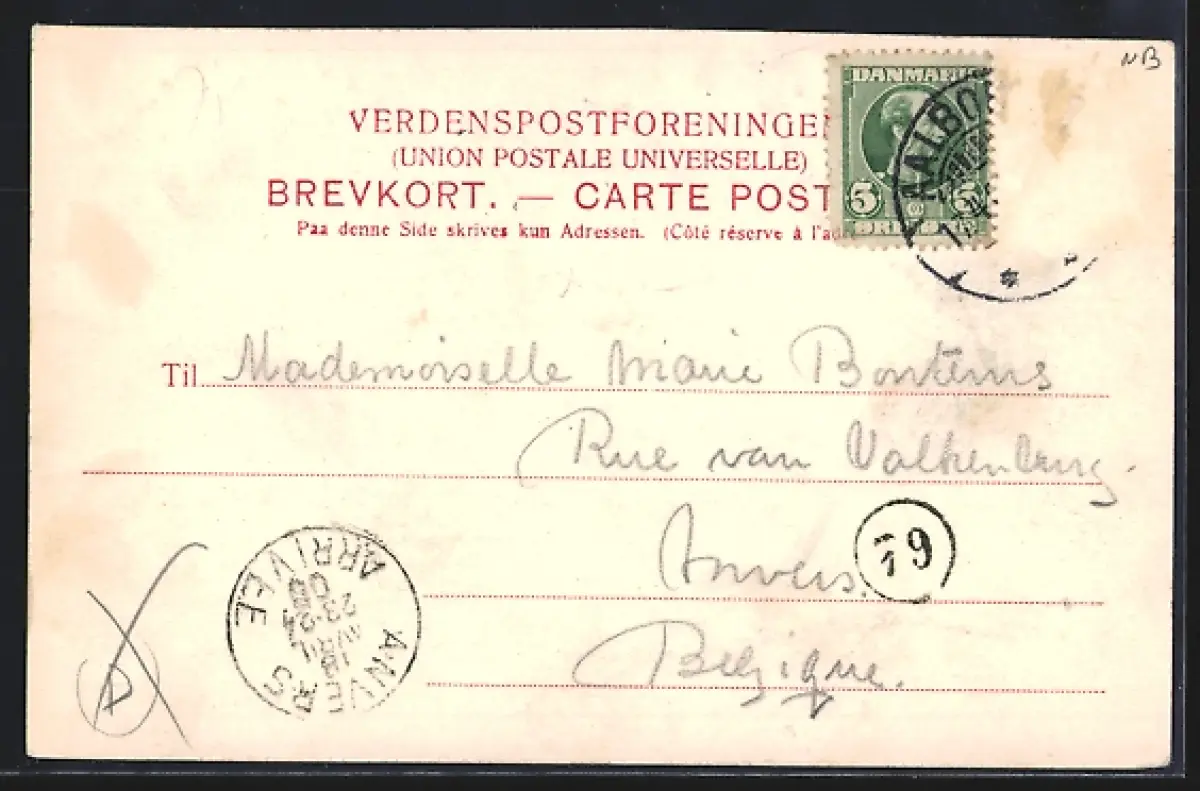 NB
DANMARK
VERDENSPOSTFORENINGEN
(UNION POSTALE UNIVERSELLE)
BREVKORT. — CARTE POST
Paa denne Side skrives kun Adressen. (Côté réserve à l'a
5 5
AALBO
Til Mademoiselle Marie Bontems
Rue van Valkenburg.
Anvers.
79
Belgique.
ANVERS
ARRIVEE
18 AVRIL
23-24